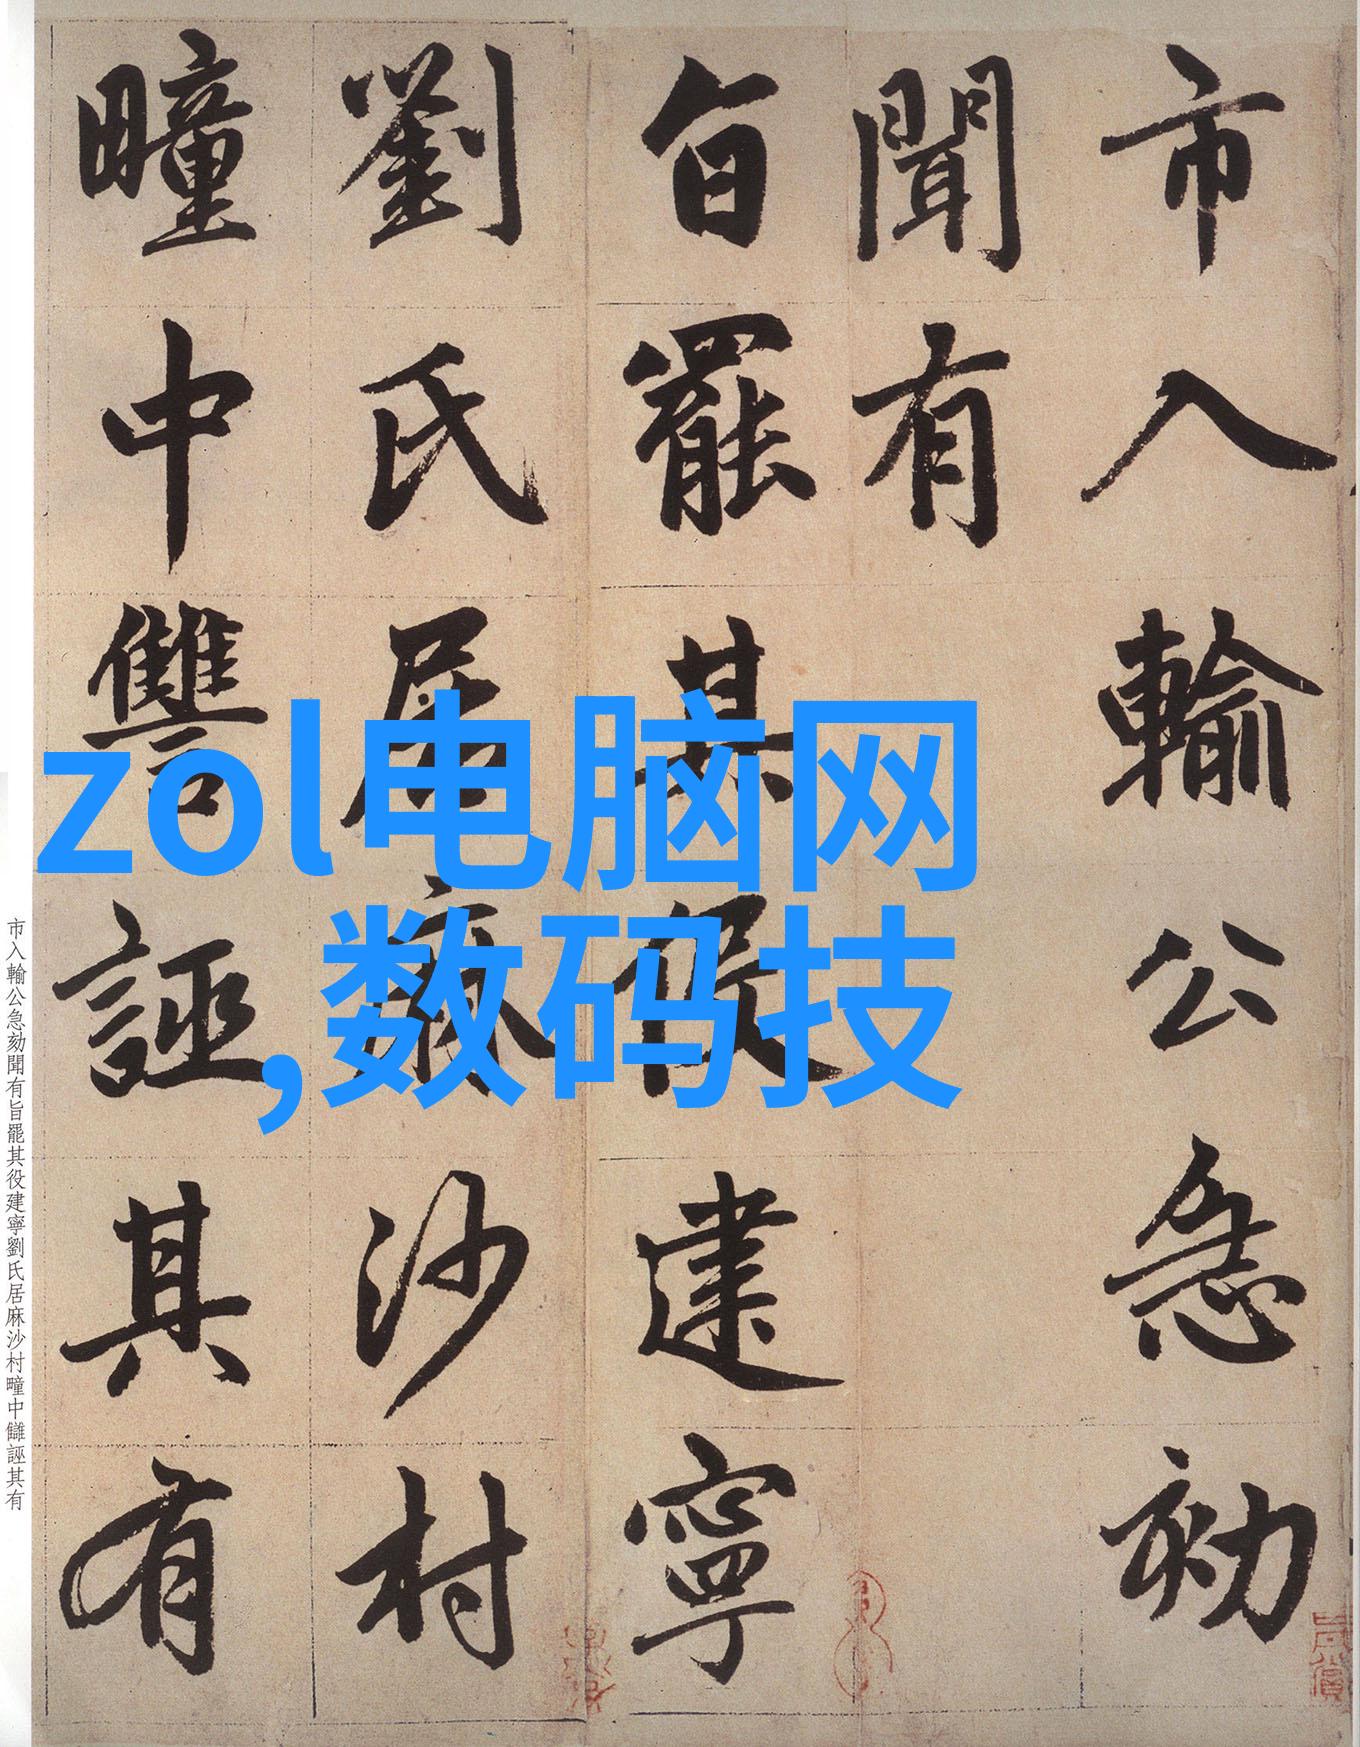 市入輸公急劾
聞有
旨罷其役建寧
劉氏居麻沙村
疃中讐誣其有
zol电脑网
,数码技
市入輸公急劾聞有旨罷其役建寧劉氏居麻沙村疃中讎誣其有